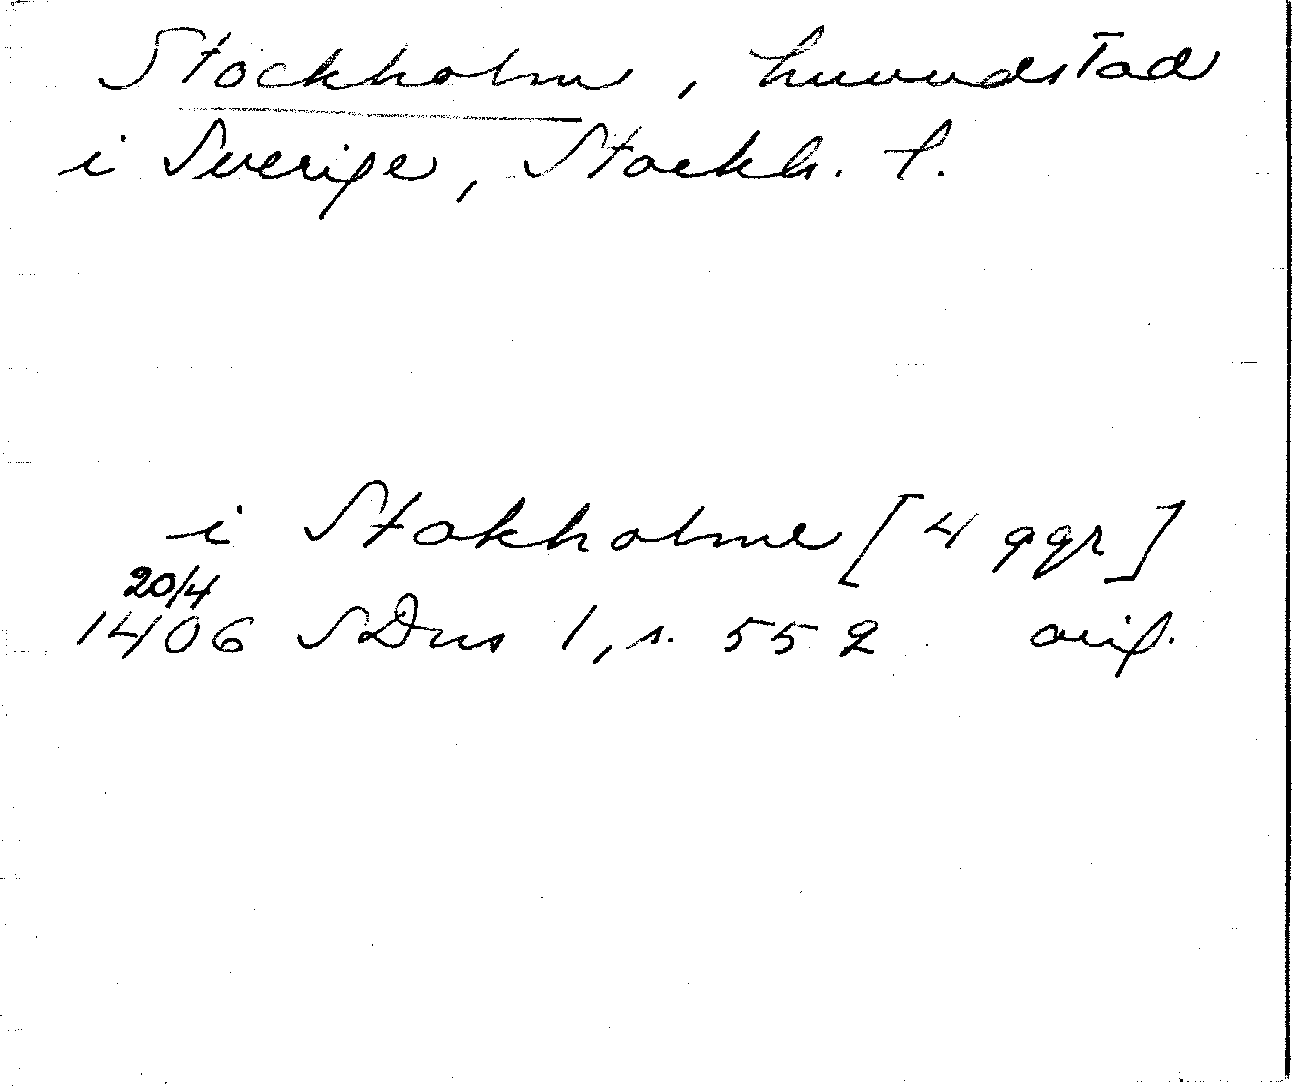 Stockholm, huvudstad
i Sverige, Stockh. l.
i Stokholme [4 ggr]
20/4
1406 SDns 1, s. 552 orig.